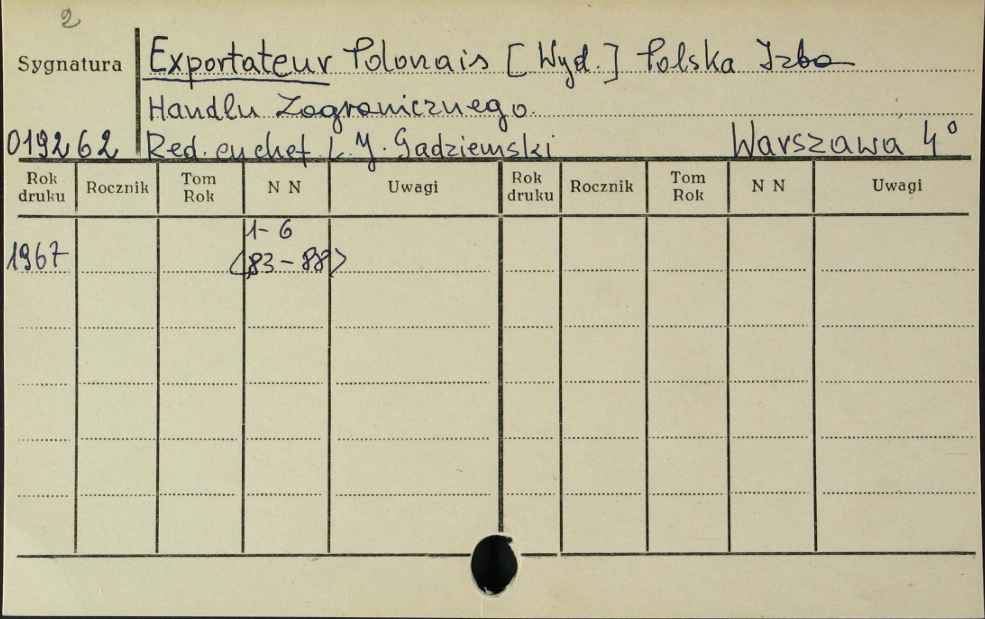 2
Sygnatura
Exportateur Polonais [Wyd.] Polska Izba
Handlu Zagranicznego.
019262 Red. en chef L. J. Gadziemski Warszawa 4°
Rok druku Rocznik Tom Rok N N Uwagi Rok druku Rocznik Tom Rok N N Uwagi
1-6
1967 <83-88>